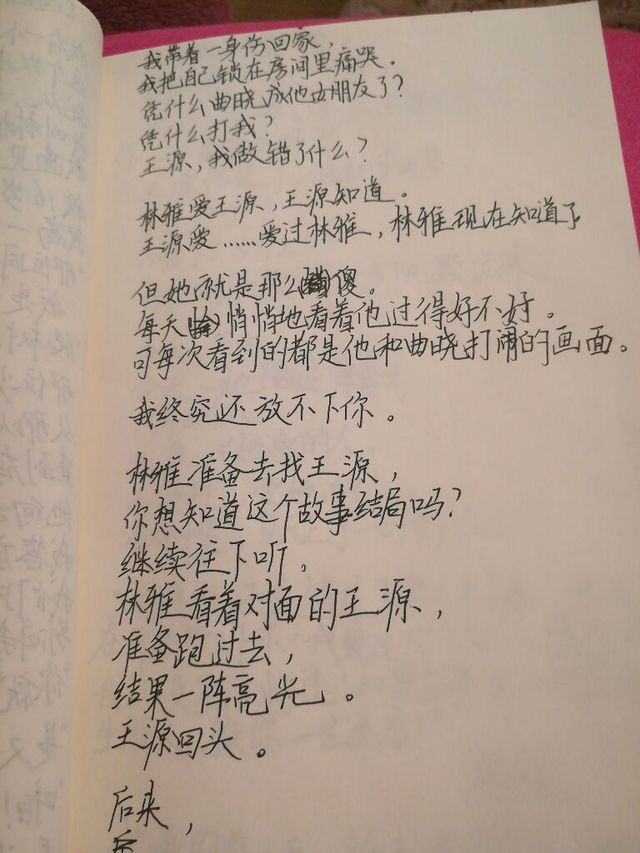 我带着一身伤回家，
我把自己锁在房间里痛哭。
凭什么曲晓成他女朋友了？
凭什么打我？
王源，我做错了什么？
林雅爱王源，王源知道。
王源爱……爱过林雅，林雅现在知道了
但她就是那么傻。
每天悄悄地看着他过得好不好。
可每次看到的都是他和曲晓打闹的画面。
我终究还放不下你。
林雅准备去找王源，
你想知道这个故事结局吗？
继续往下听，
林雅看着对面的王源，
准备跑过去，
结果一阵亮光。
王源回头。
后来，